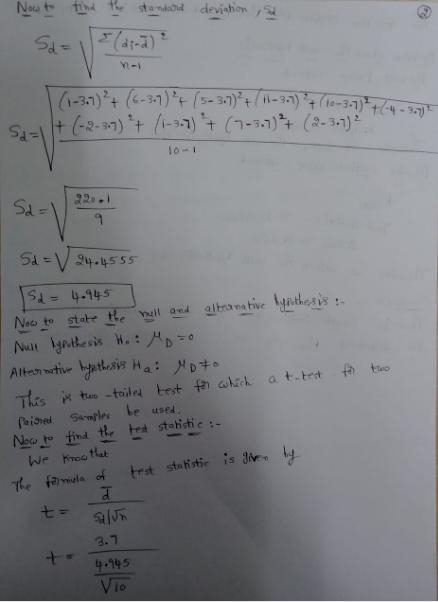 ②
Now to find the standard deviation, Sd
Sd = √(Σ(di-d̄)²/(n-1))
Sd = √(((1-3.7)² + (6-3.7)² + (5-3.7)² + (11-3.7)² + (10-3.7)² + (-4-3.7)²
+ (-2-3.7)² + (1-3.7)² + (7-3.7)² + (2-3.7)²)/(10-1))
Sd = √(220.1/9)
Sd = √24.4555
Sd = 4.945
Now to state the null and alternative hypothesis :-
Null hypothesis H₀ : μD = 0
Alternative hypothesis Ha : μD ≠ 0
This is two-tailed test for which a t-test for two
paired samples be used.
Now to find the test statistic :-
We know that
The formula of test statistic is given by
t = d̄/(Sd/√n)
t = 3.7/(4.945/√10)